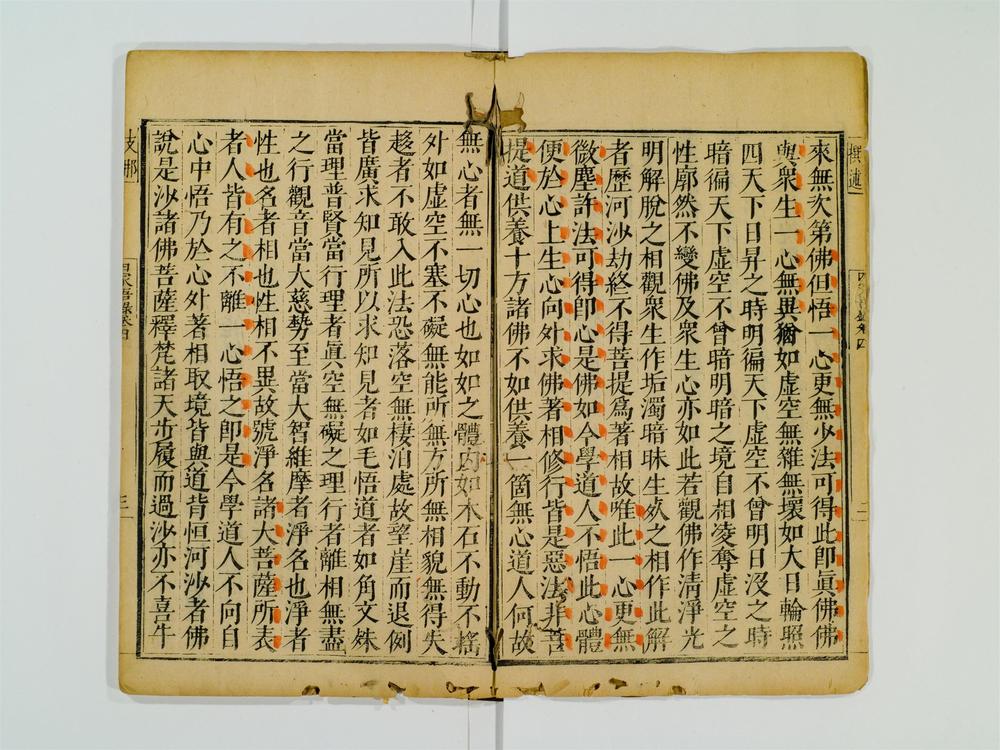 撰述
來無次第佛但悟一心更無少法可得此卽眞佛佛
與衆生一心無異猶如虛空無雜無壞如大日輪照
四天下日昇之時明徧天下虛空不曾明日沒之時
暗徧天下虛空不曾暗明暗之境自相凌奪虛空之
性廓然不變佛及衆生心亦如此若觀佛作淸淨光
明解脫之相觀衆生作垢濁暗昧生死之相作此解
者歷河沙劫終不得菩提爲著相故唯此一心更無
微塵許法可得卽心是佛如今學道人不悟此心體
便於心上生心向外求佛著相修行皆是惡法非菩
提道供養十方諸佛不如供養一箇無心道人何故
二
無心者無一切心也如如之體內如木石不動不搖
外如虛空不塞不礙無能所無方所無相貌無得失
趨者不敢入此法恐落空無棲泊處故望崖而退例
皆廣求知見所以求知見者如毛悟道者如角文殊
當理普賢當行理者眞空無礙之理行者離相無盡
之行觀音當大慈勢至當大智維摩者淨名也淨者
性也名者相也性相不異故號淨名諸大菩薩所表
者人皆有之不離一心悟之卽是今學道人不向自
心中悟乃於心外著相取境皆與道背恒河沙者佛
說是沙諸佛菩薩釋梵諸天步履而過沙亦不喜牛
支那
四家語錄卷四
三